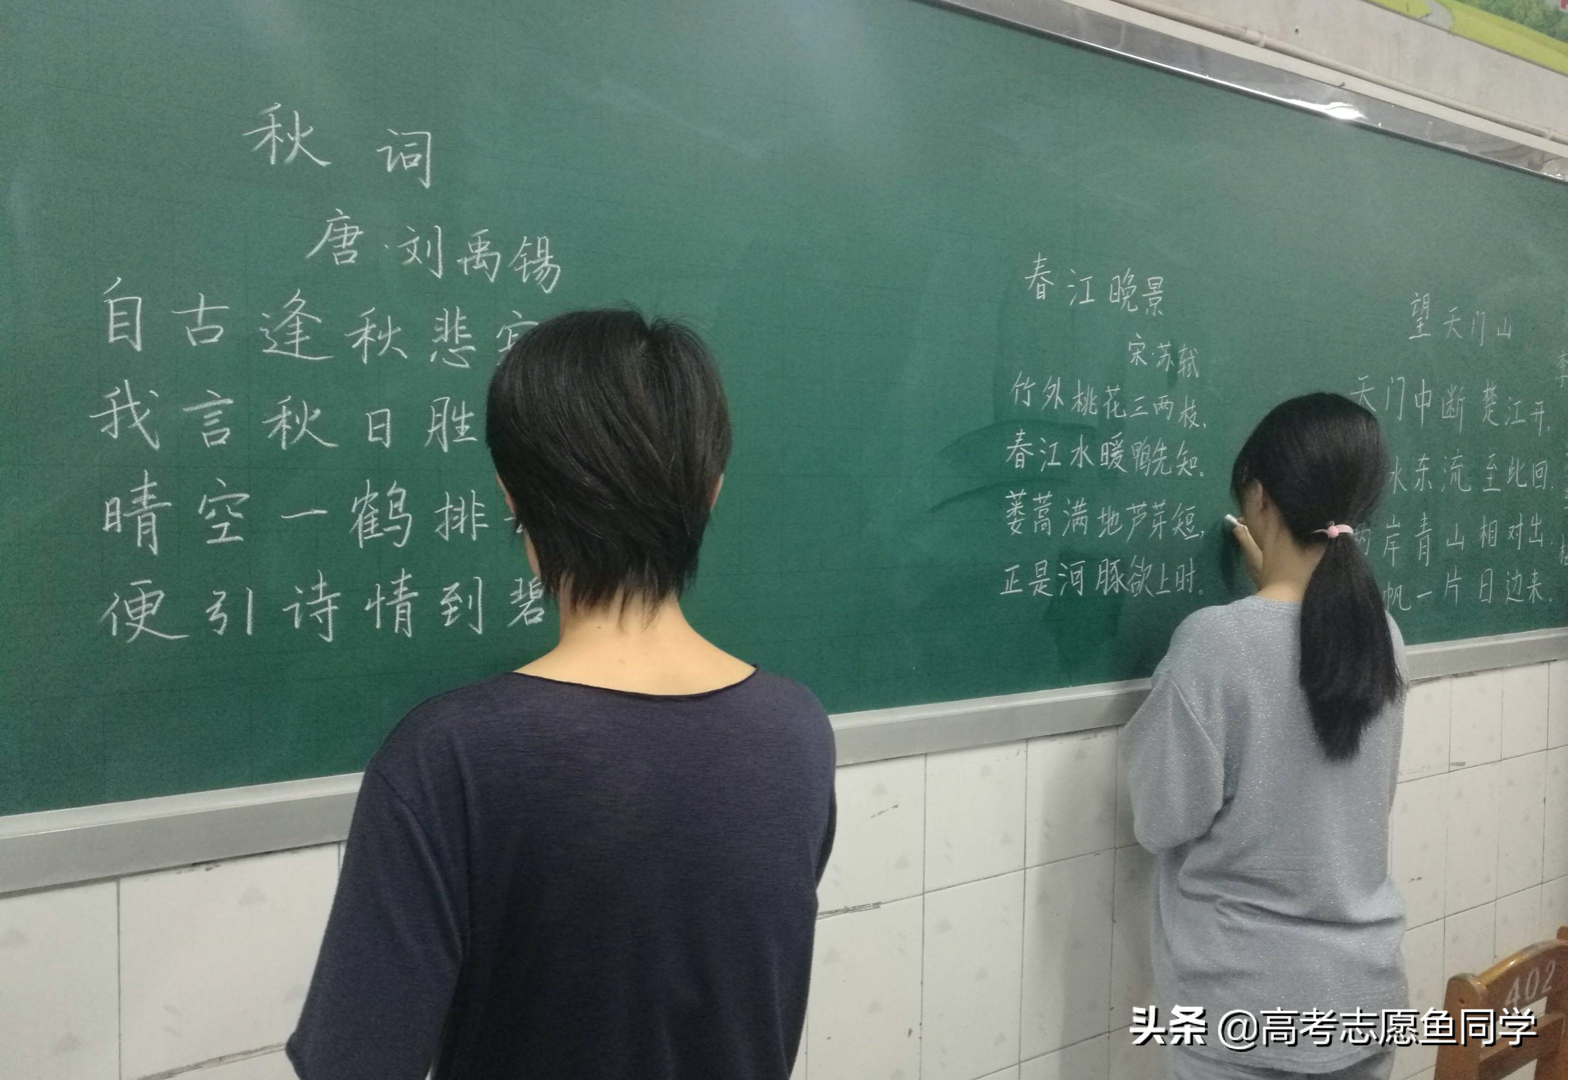 秋词
唐·刘禹锡
自古逢秋悲
我言秋日胜
晴空一鹤排
便引诗情到碧
春江晚景
宋·苏轼
竹外桃花三两枝,
春江水暖鸭先知.
蒌蒿满地芦芽短,
正是河豚欲上时.
望天门山
天门中断楚江开,
水东流至此回.
岸青山相对出
帆一片日边来.
402
头条 @高考志愿鱼同学